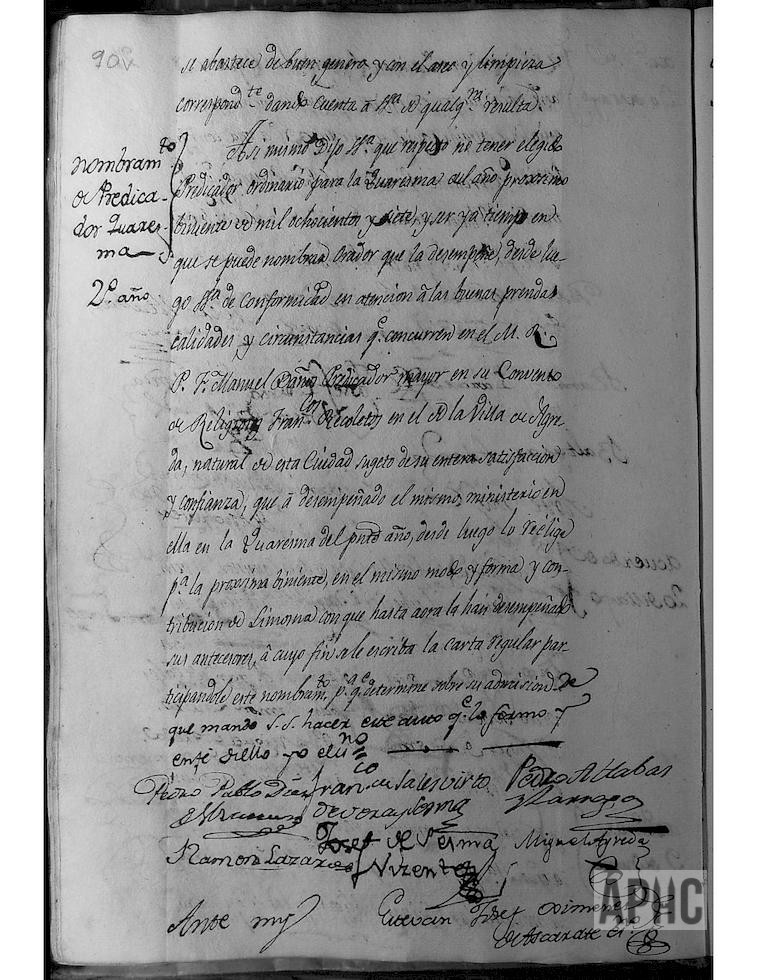 206
se abastece de buen genero y con el aseo y limpieza
correspond.te dando Cuenta a S.ra de qualq.ra resulta
nombram.to
de Predica-
dor Quares-
ma
2.º año
Asi mismo Dijo S.ra que respeto no tener elegido
Predicador ordinario para la Quaresma del año proximo
biniente de mil ochocientos y siete, y ser ya tiempo en
que se puede nombrar Orador que la desempeñe, desde lue-
go S.ra de Conformidad en atencion a las buenas prendas
calidades y circunstancias q.e concurren en el M. R.
P. F. Manuel Predicador mayor en su Convento
de Religiosos Fran.cos Recoletos en el de la Villa de Agre-
da, natural de esta Ciudad sugeto de su entera satisfaccion
y confianza, que a desempeñado el mismo ministerio en
ella en la Quaresma del pnte año, desde luego lo reelige
p.a la proxima biniente, en el mismo modo y forma y con-
tribucion de Limosna con que hasta aora la han desempeñado
sus antecesores, a cuyo fin sele escriba la Carta regular par-
ticipandole este nombram.to p.a q.e determine sobre su admision de
que mandó S.S. hacer este auto q.e lo firmó y
en fe dello yo el es.no
Pedro Pablo Diez Fran.co de Sales Virto Pedro Allabas
de vera y Lerma y Larraga
Josef de Lerma Miguel Ayreda
Ramon Lazaro Vizente
Ante my Estevan Josef Ximenez
de Ascarate es.no
APHC